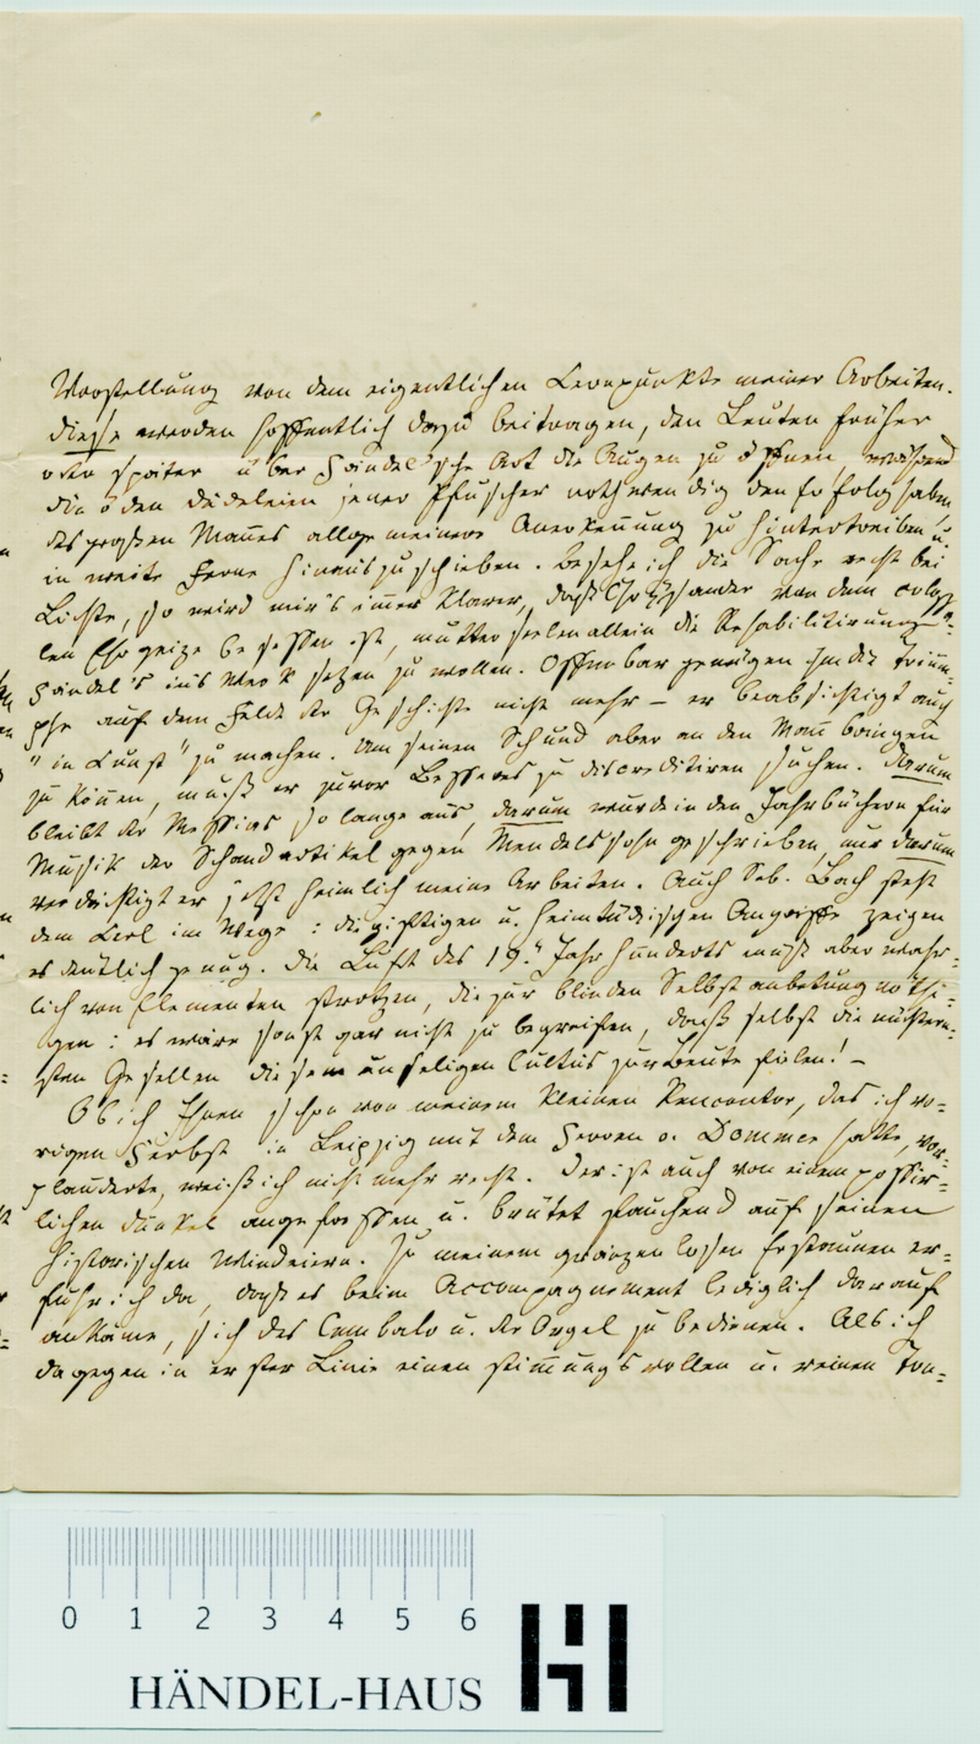 Vorstellung von dem eigentlichen Kernpunkte meiner Arbeiten.
Diese werden hoffentlich dazu beitragen, den Leuten früher
oder später über Händel'sche Art die Augen zu öffnen, während
die öden Dudeleien jener Pfuscher nothwendig den Erfolg haben,
des großen Mañes allgemeinere Anerkeñung zu hintertreiben u.
in weite Ferne hinauszuschieben. Besehe ich die Sache recht bei
Lichte, so wird mir's im̃er klarer, daß Chrysander von dem colossa-
len Ehrgeize besessen ist, mutterseelenallein die Rehabilitirung
Händel's ins Werk setzen zu wollen. Offenbar genügen ihm die Trium-
phe auf dem Felde der Geschichte nicht mehr – er beabsichtigt auch
"in Kunst" zu machen. Um seinen Schund aber an den Mañ bringen
zu köñen, muß er zuvor Besseres zu discreditiren suchen. Darum
bleibt der Messias so lange aus, darum wurde in den Jahrbüchern für
Musik der Schandartikel gegen Mendelssohn geschrieben, nur darum
verdächtigt er jetzt heimlich meine Arbeiten. Auch Seb. Bach steht
dem Kerl im Wege: die giftigen u. heimtückischen Angriffe zeigen
es deutlich genug. Die Luft des 19. Jahrhunderts muß aber wahr-
lich von Elementen strotzen, die zur blinden Selbstanbetung nöthi-
gen: es wäre sonst gar nicht zu begreifen, daß selbst die nüchtern-
sten Gesellen diesem unseligen Cultus zur Beute fielen! –
Ob ich Ihnen schon von meinem kleinen Rencontre, das ich vo-
rigen Herbst in Leipzig mit dem Herren v. Dommer hatte, vor-
plauderte, weiß ich nicht mehr recht. Der ist auch von einem possir-
lichen Dünkel angefressen u. brütet fauchend auf seinen
historischen Windeiern. Zu meinem gränzenlosen Erstaunen er-
fuhr ich da, daß es beim Accompagnement lediglich darauf
ankäme, sich des Cembalo u. der Orgel zu bedienen. Als ich
dagegen in erster Linie einen stim̃ungsvollen u. reinen Ton-
0 1 2 3 4 5 6
HÄNDEL-HAUS